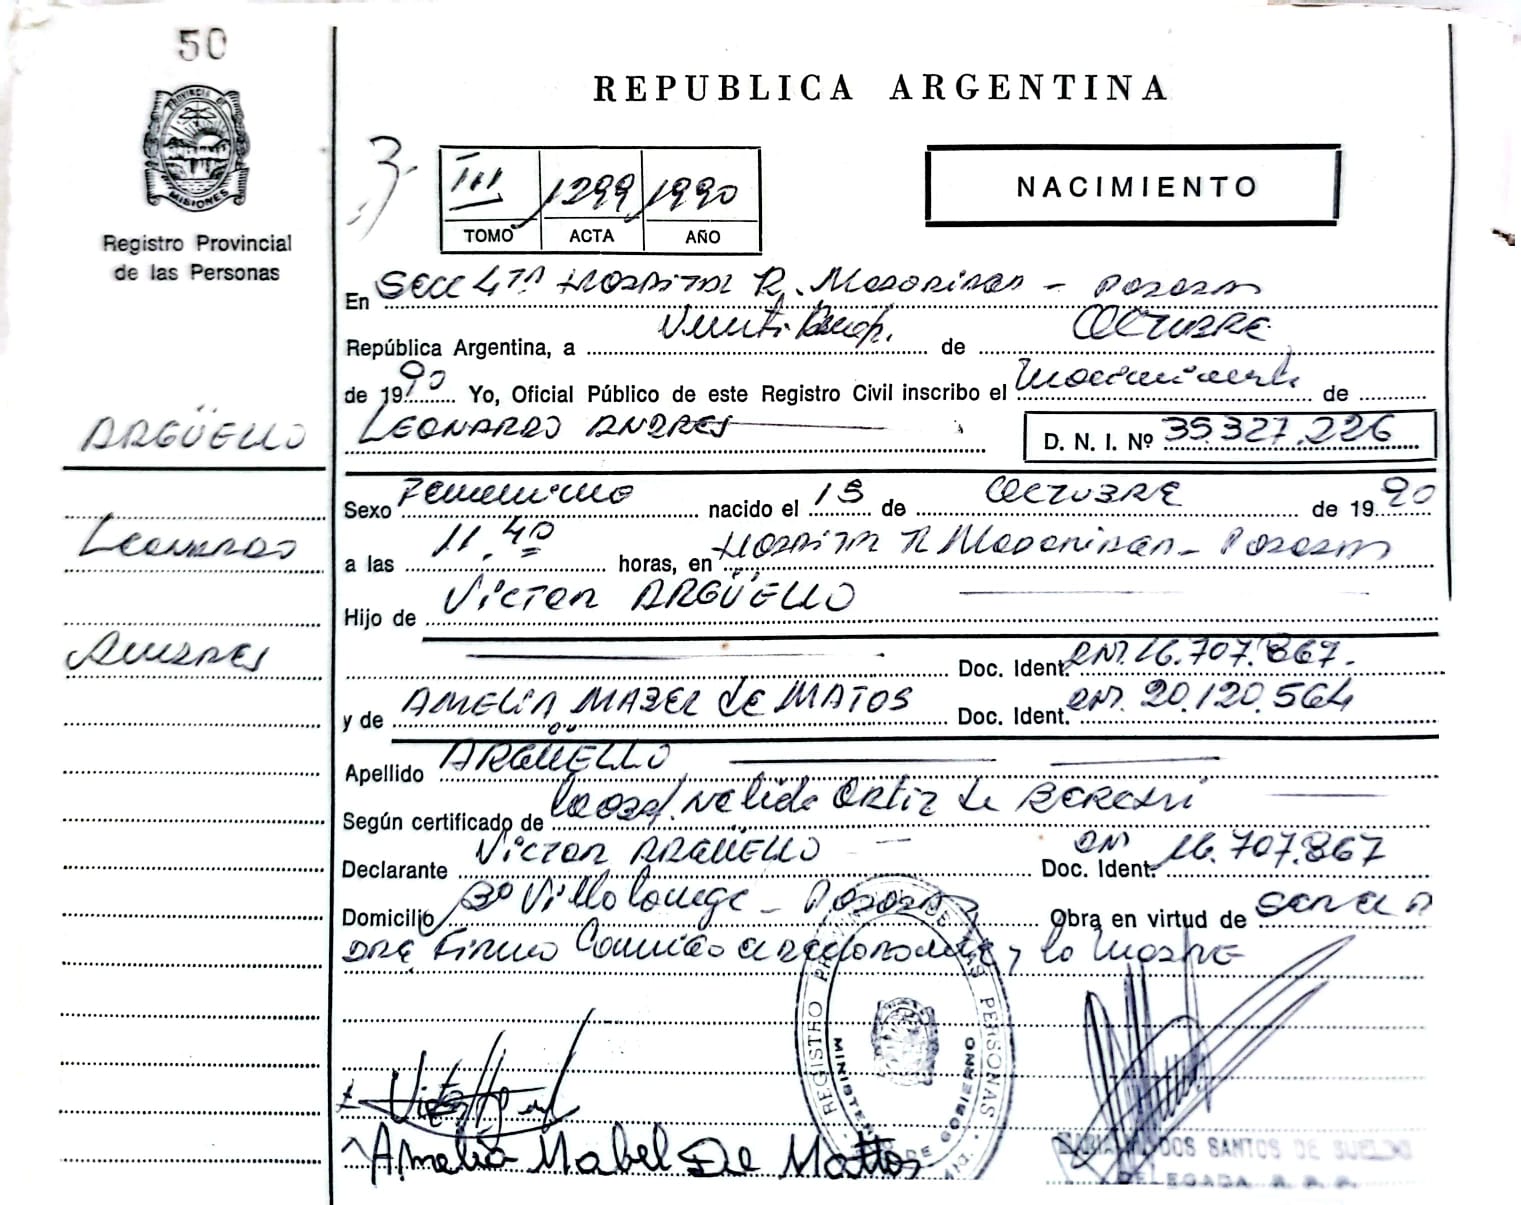 50
PROVINCIA DE
MISIONES
Registro Provincial
de las Personas
REPUBLICA ARGENTINA
III 1299 1990
TOMO ACTA AÑO
NACIMIENTO
En SECC 4TA HOSPITAL R. Madariaga - Posadas
República Argentina, a de OCTUBRE
de 1990 Yo, Oficial Público de este Registro Civil inscribo el Nacimiento de
ARGÜELLO
LEONARDO ANDRES
D. N. I. Nº 35.327.226
Sexo Femenino nacido el 15 de OCTUBRE de 1990
LEONARDO
a las 11.40 horas, en HOSPITAL R Madariaga - Posadas
Hijo de Victor ARGÜELLO
ANDRES
Doc. Ident. DNI. 16.707.867.
y de AMELIA MABEL de MATOS Doc. Ident. DNI. 20.120.564
Apellido ARGÜELLO
Según certificado de Nelida Ortiz de
Declarante Victor ARGÜELLO Doc. Ident. DNI 16.707.867
Domicilio Bº Villa Posadas Obra en virtud de
Firma y la Madre
REGISTRO PROVINCIAL DE LAS PERSONAS
MINISTERIO DE GOBIERNO
Amelia Mabel De Mattos
DOS SANTOS DE
DELEGADA R. P. P.